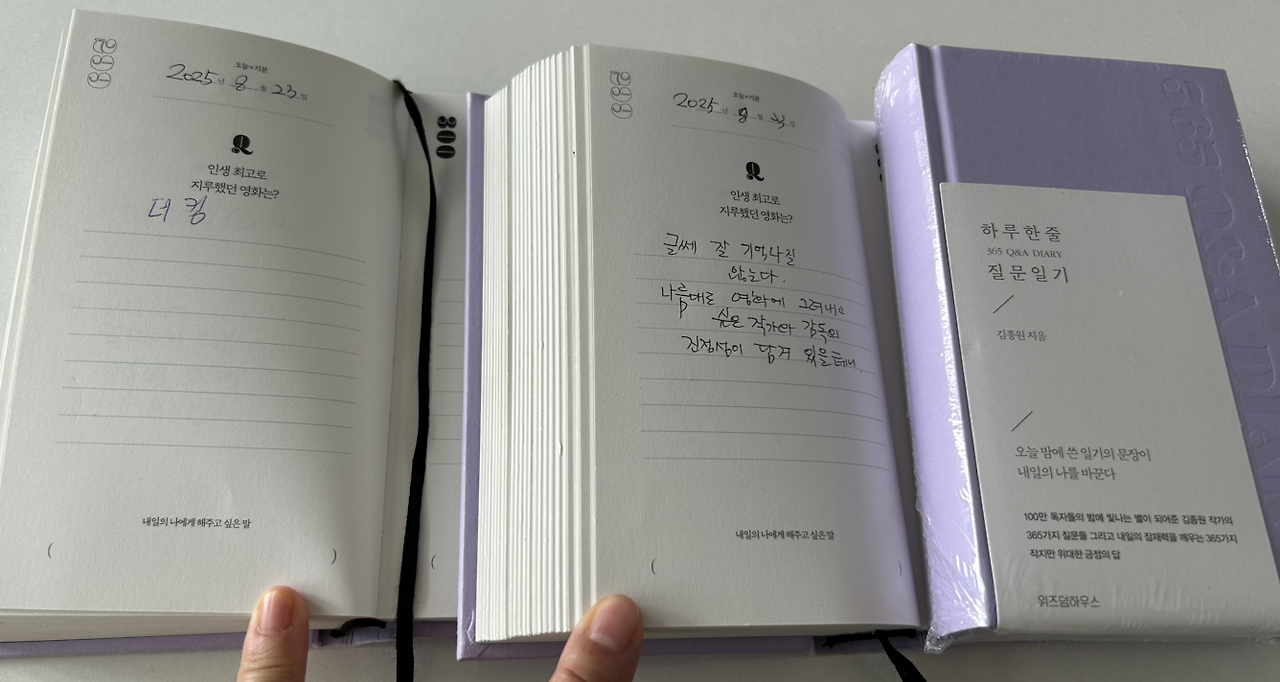 299
오늘×기분
2025년 8월 23일
Q
인생 최고로
지루했던 영화는?
더 킹
내일의 나에게 해주고 싶은 말
( )
300
(
299
오늘×기분
2025년 8월 23일
Q
인생 최고로
지루했던 영화는?
글쎄 잘 기억나질
않는다.
나름대로 영화에 그려내고
싶은 작가와 감독의
진정성이 담겨 있을테니.
내일의 나에게 해주고 싶은 말
( )
365 Q&A DIA
하루한줄
365 Q&A DIARY
질문일기
김종원 지음
오늘 밤에 쓴 일기의 문장이
내일의 나를 바꾼다
100만 독자들의 밤에 빛나는 별이 되어준 김종원 작가의
365가지 질문들 그리고 내일의 잠재력을 깨우는 365가지
작지만 위대한 긍정의 답
위즈덤하우스